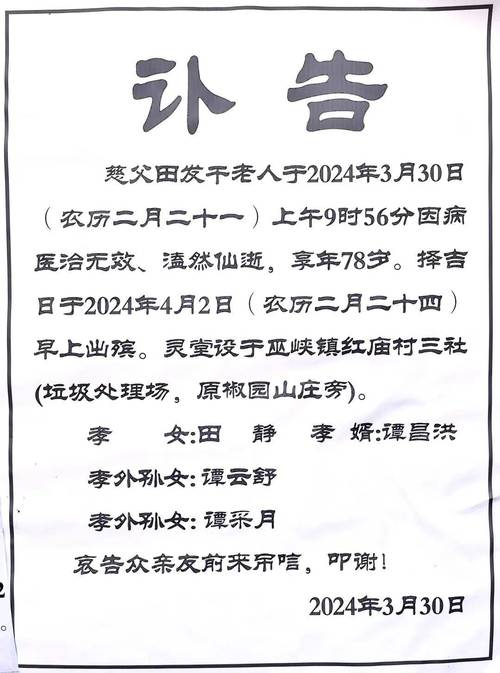 讣告
慈父田发干老人于2024年3月30日
（农历二月二十一）上午9时56分因病
医治无效、溘然仙逝，享年78岁。择吉
日于2024年4月2日（农历二月二十四）
早上出殡。灵堂设于巫峡镇红庙村三社
(垃圾处理场，原椒园山庄旁)。
孝 女:田 静 孝 婿:谭昌洪
孝外孙女:谭云舒
孝外孙女:谭采月
哀告众亲友前来吊唁，叩谢!
2024年3月30日
2
。